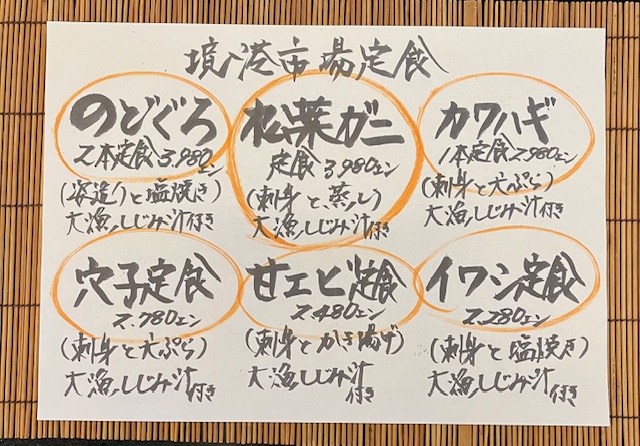 境港市場定食
のどぐろ
2本定食3,980ェン
(姿造りと塩焼き)
大漁しじみ汁付き
松葉ガニ
定食3,980ェン
(刺身と蒸し)
大漁しじみ汁付き
カワハギ
1本定食2,980ェン
(刺身と天ぷら)
大漁しじみ汁付き
穴子定食
2.780ェン
(刺身と天ぷら)
大漁しじみ汁付き
甘エビ定食
2,480ェン
(刺身とかき揚げ)
大漁しじみ汁付き
イワシ定食
2,280ェン
(刺身と塩焼き)
大漁しじみ汁付き